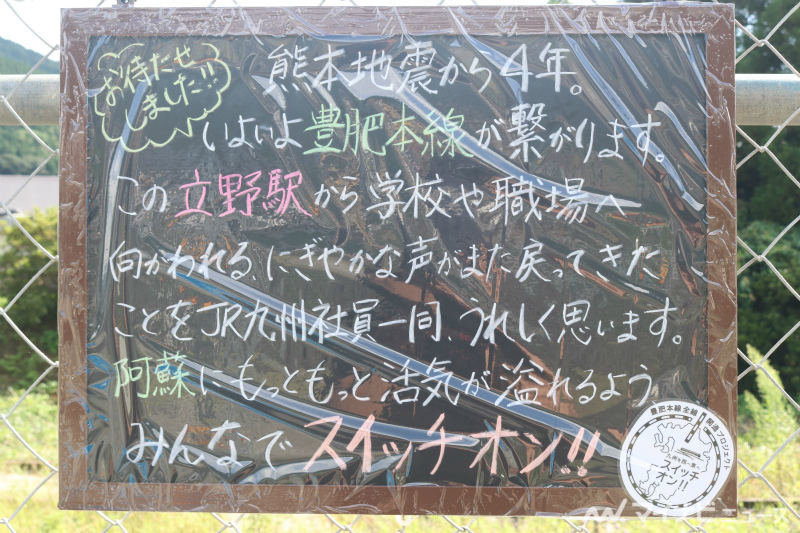 お待たせ
しました!!
熊本地震から4年。
いよいよ豊肥本線が繋がります。
この立野駅から学校や職場へ
向かわれる、にぎやかな声がまた戻ってきた
ことをJR九州社員一同、うれしく思います。
阿蘇にもっともっと活気が溢れるよう
みんなでスイッチオン!!
豊肥本線全線 開通プロジェクト
スイッチ
オン!!
マイナビニュース